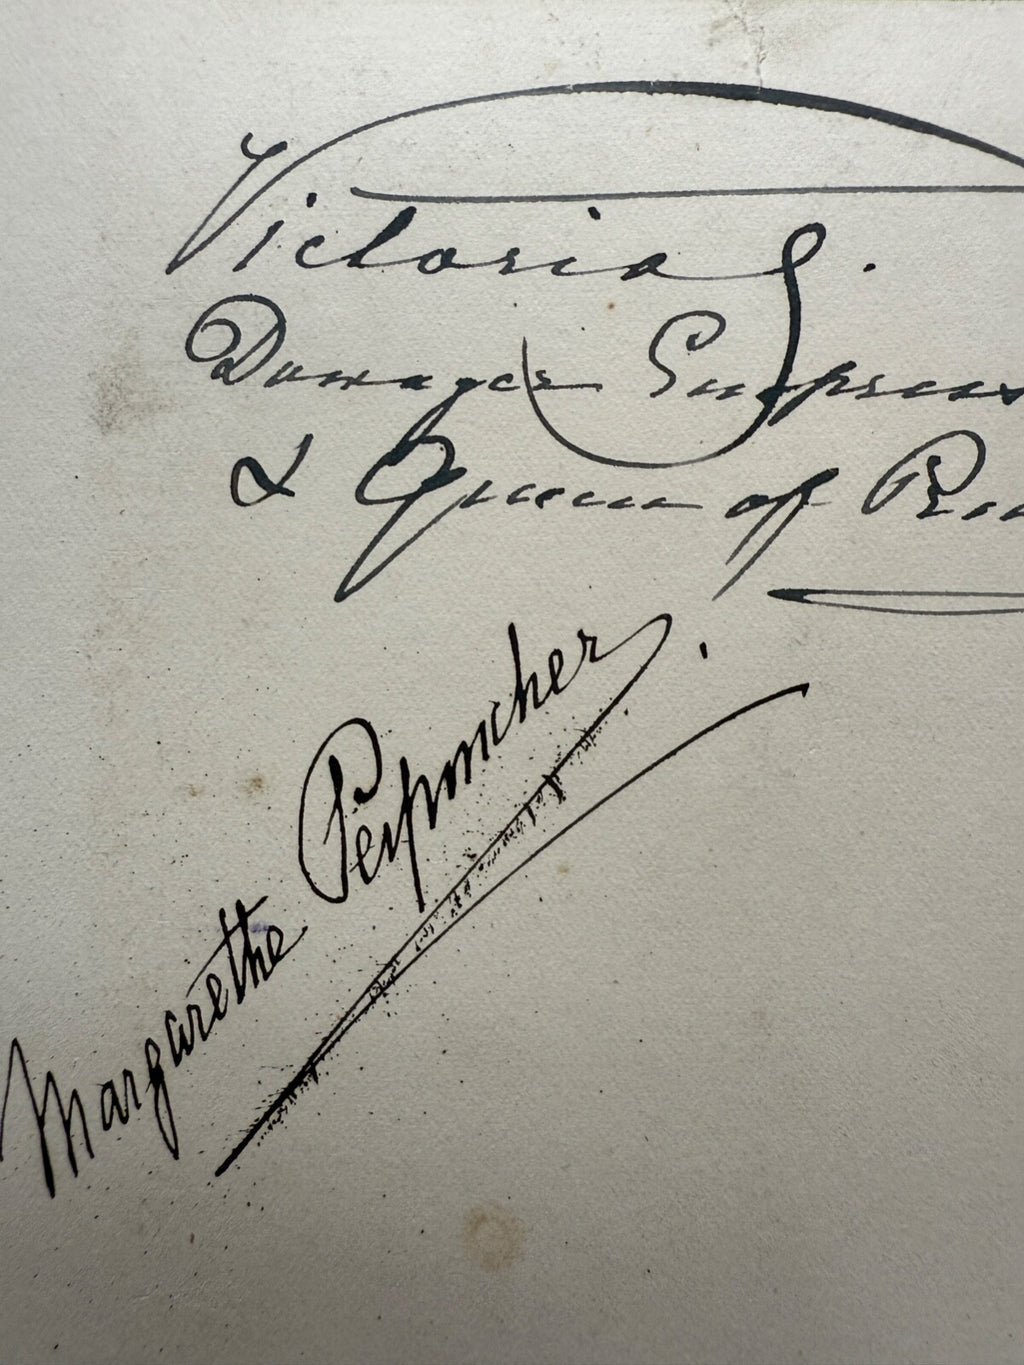 Victoria
Dowager Empress
& Queen of
Margarethe Perponcher.